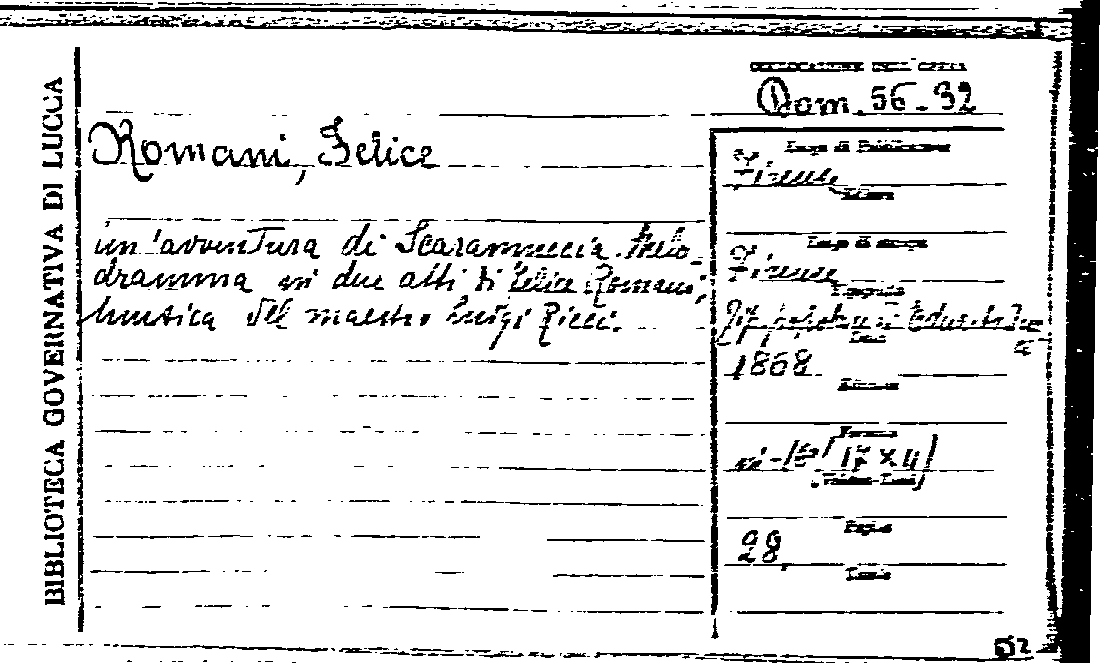 BIBLIOTECA GOVERNATIVA DI LUCCA
COLLOCAZIONE DELL'OPERA
Dom. 56-32
Romani, Felice
un'avventura di Scaramuccia. Melo-
dramma in due atti di Felice Romani,
musica del maestro Luigi Ricci.
Luogo di Pubblicazione
Firenze
Editore
Luogo di stampa
Firenze
Tipografia
Tip.
Data
1868
Formato
in-16° (17 x 11)
Pagine
28
52